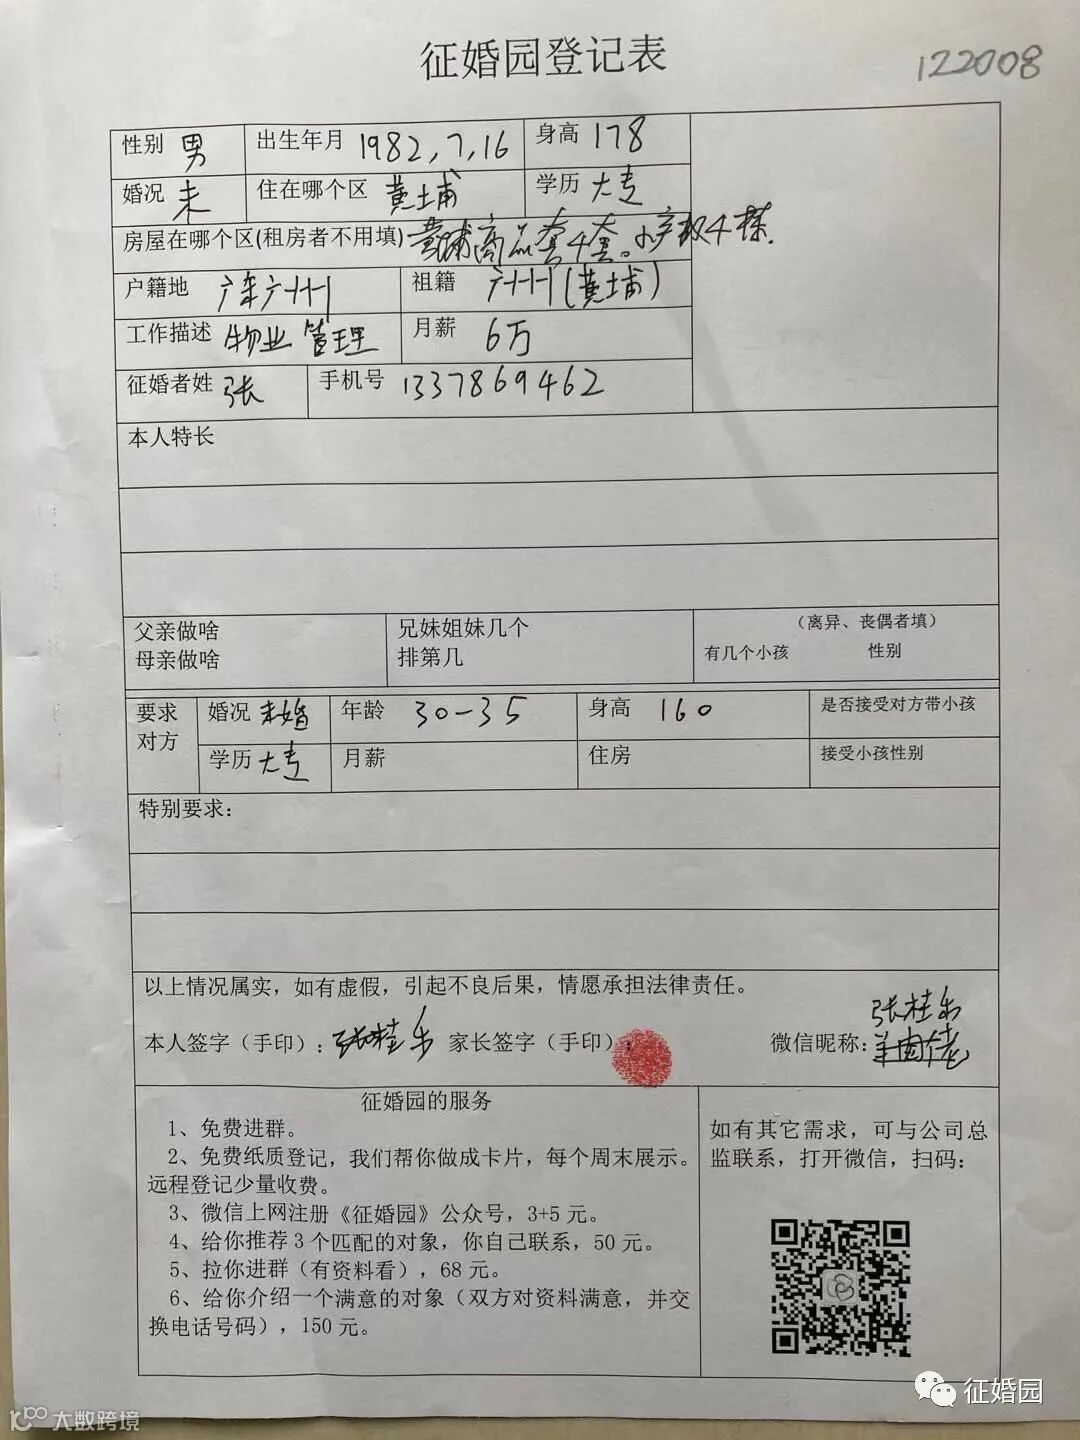 征婚园登记表
122008
性别 男 出生年月 1982,7,16 身高 178
婚况 未 住在哪个区 黄埔 学历 大专
房屋在哪个区(租房者不用填) 黄埔商品套4套。小产权4栋.
户籍地 广东广州 祖籍 广州(黄埔)
工作描述 物业管理 月薪 6万
征婚者姓 张 手机号 1337869462
本人特长
父亲做啥 兄妹姐妹几个 (离异、丧偶者填)
母亲做啥 排第几 有几个小孩 性别
要求对方 婚况 未婚 年龄 30-35 身高 160 是否接受对方带小孩
学历 大专 月薪 住房 接受小孩性别
特别要求:
以上情况属实，如有虚假，引起不良后果，情愿承担法律责任。
张桂乐
本人签字（手印）: 张桂乐 家长签字（手印）: 微信昵称:
征婚园的服务
1、免费进群。
2、免费纸质登记，我们帮你做成卡片，每个周末展示。
远程登记少量收费。
3、微信上网注册《征婚园》公众号，3+5 元。
4、给你推荐 3 个匹配的对象，你自己联系，50 元。
5、拉你进群（有资料看），68 元。
6、给你介绍一个满意的对象（双方对资料满意，并交
换电话号码），150 元。
如有其它需求，可与公司总
监联系，打开微信，扫码：
征婚园
大数跨境